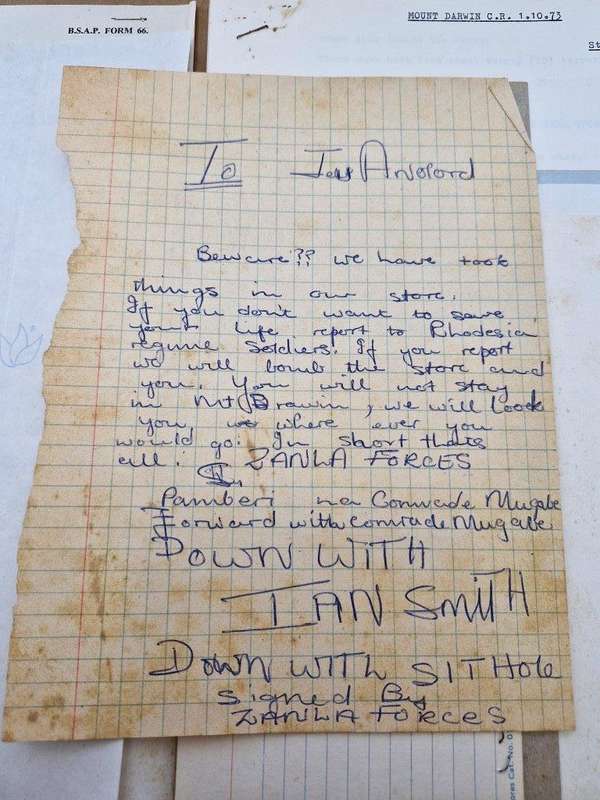 B.S.A.P. FORM 66.
MOUNT DARWIN C.R. 1.10.73
To
Beware?? we have took
things in our store.
If you don't want to save
your life report to Rhodesia
regime Soldiers. If you report
we will bomb the store and
you. You will not stay
in Mt Drawin, we will Look
you, where ever you
would go. In short thats
all.
ZANLA FORCES
Pamberi na Comrade Mugabe
Forward with comrade Mugabe
DOWN WITH
IAN SMITH
DOWN WITH SITHOLE
Signed By
ZANLA FORCES